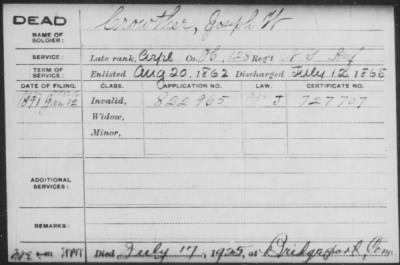 DEAD
NAME OF SOLDIER: Crowther, Joseph W
SERVICE: Late rank, Corpl Co. 123 Reg't N.Y. Inf
TERM OF SERVICE: Enlisted Aug 20, 1862 Discharged July 12, 1865
DATE OF FILING. CLASS. APPLICATION NO. LAW. CERTIFICATE NO.
1891 Jan 12 Invalid, 822965 J 727707
Widow,
Minor,
ADDITIONAL SERVICES:
REMARKS:
Died July 17, 1925, at Bridgeport, Conn